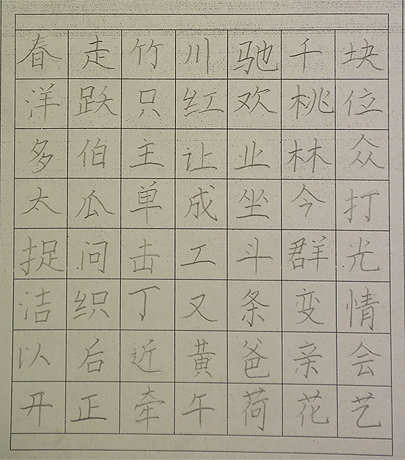 春走竹川驰千块
洋跃只红欢桃位
多伯主让业林众
太瓜单成坐今打
捉问击工斗群光
洁织丁又条变情
以后近黄爸亲会
开正牵午荷花艺